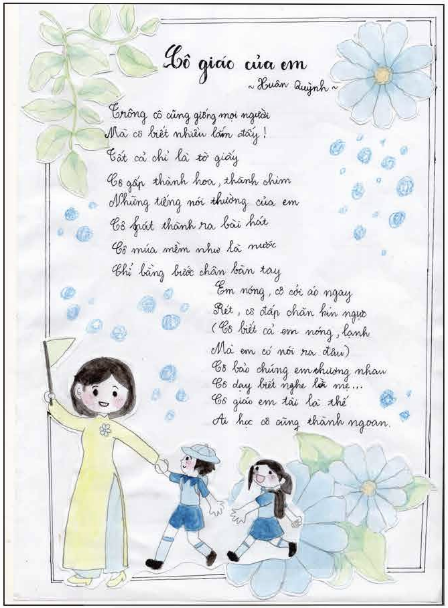 Cô giáo của em
~ Xuân Quỳnh ~
Trông cô cũng giống mọi người
Mà cô biết nhiều lắm đấy!
Tất cả chỉ là tờ giấy
Cô gấp thành hoa, thành chim
Những tiếng nói thường của em
Cô phát thành ra bài hát
Cô múa mềm như là nước
Chỉ bằng bước chân bàn tay
Em nóng, cô cởi áo ngay
Rét, cô đắp chăn kín ngực
(Cô biết cả em nóng, lạnh
Mà em có nói ra đâu)
Cô bảo chúng em thương nhau
Cô dạy biết nghe lời mẹ...
Cô giáo em tài là thế
Ai học cô cũng thành ngoan.